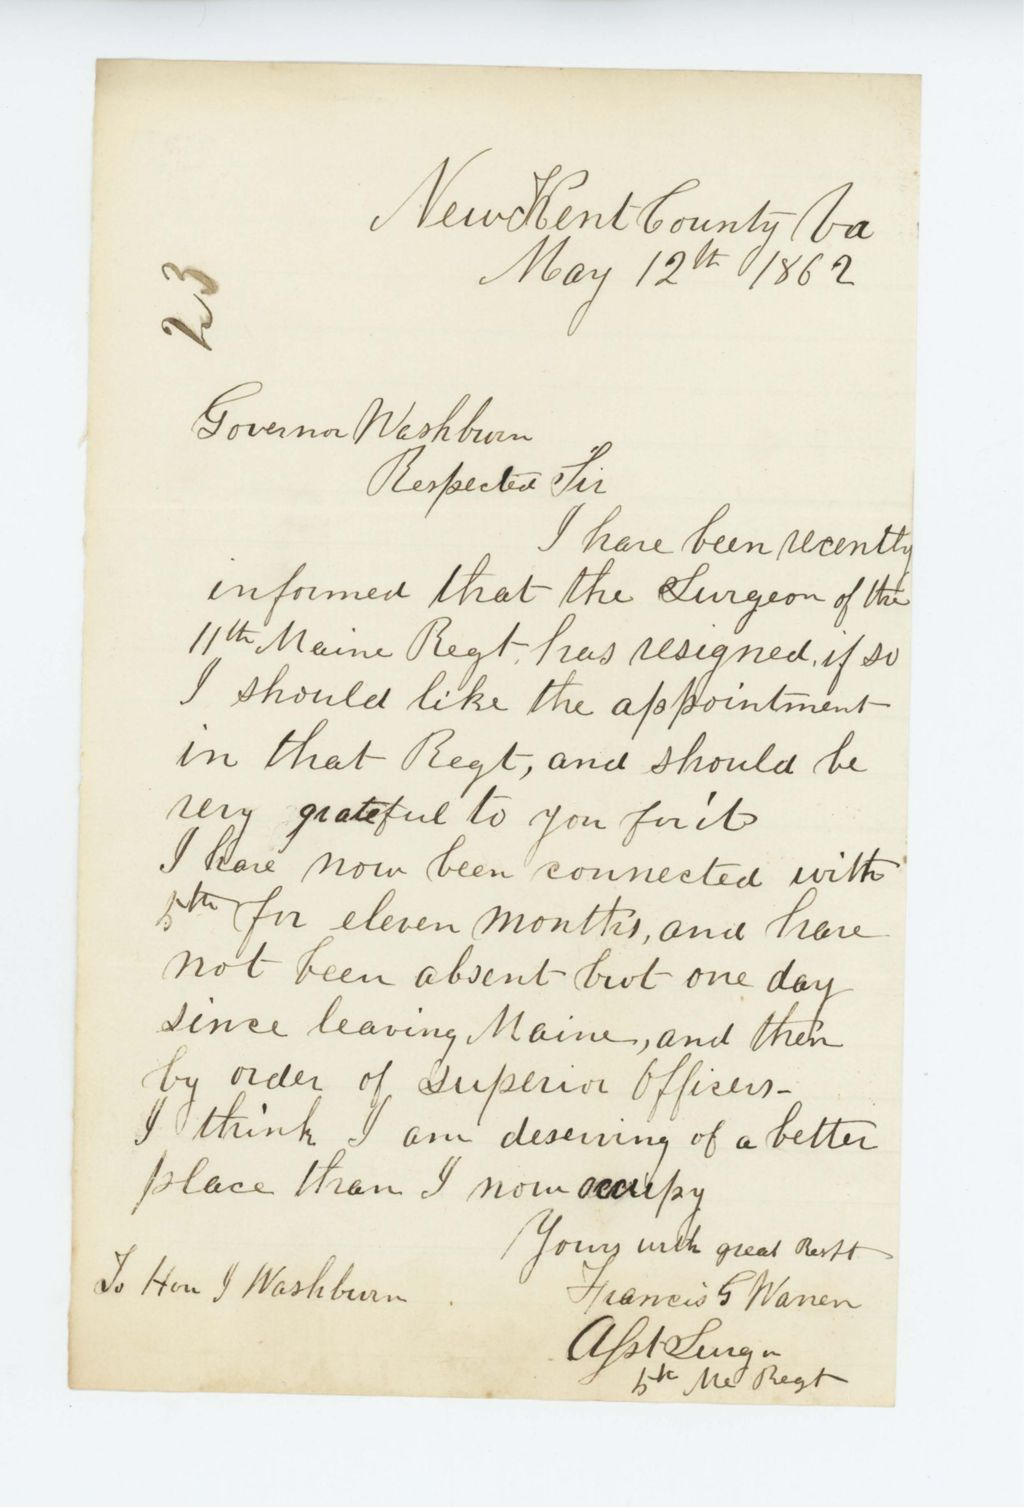 New Kent County Va
May 12th 1862
23
Governor Washburn
Respected Sir
I have been recently
informed that the Surgeon of the
11th Maine Regt. has resigned, if so
I should like the appointment
in that Regt, and should be
very grateful to you for it
I have now been connected with
5th for eleven months, and have
not been absent but one day
since leaving Maine, and then
by order of superior Officers-
I think I am deserving of a better
place than I now occupy
Yours with great Respt
To Hon I Washburn
Francis G Warren
Asst Surgn
5th Me Regt